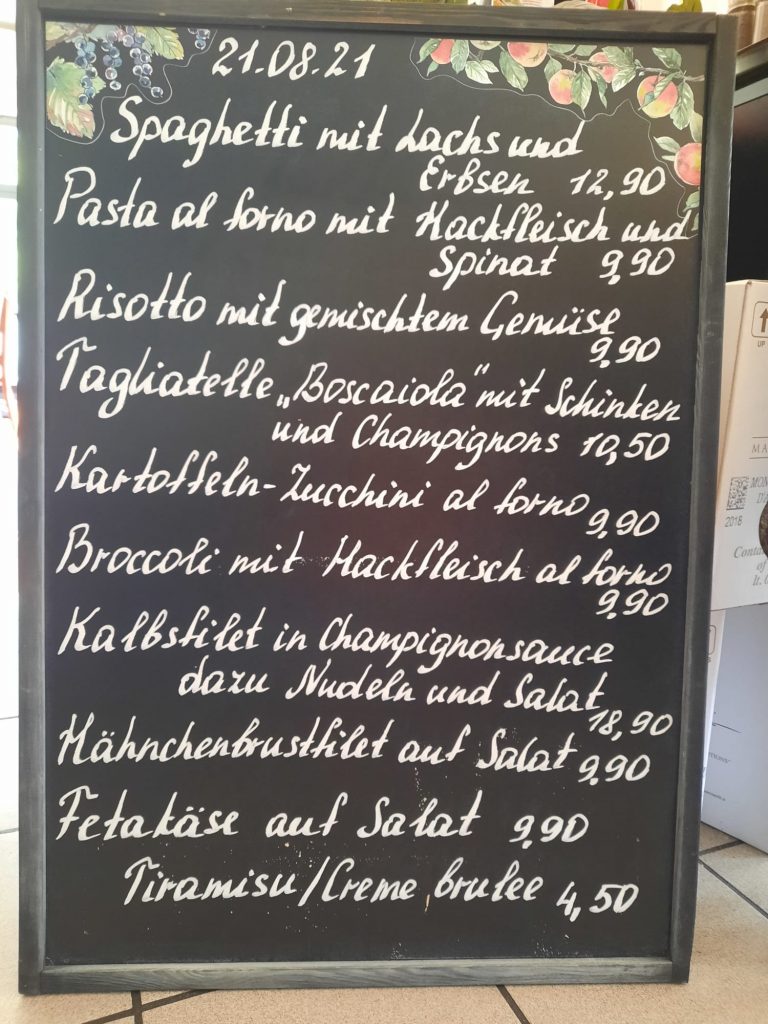 21.08.21
Spaghetti mit Lachs und
Erbsen 12,90
Pasta al forno mit Hackfleisch und
Spinat 9,90
Risotto mit gemischtem Gemüse
9,90
Tagliatelle „Boscaiola" mit Schinken
und Champignons 10,50
Kartoffeln-Zucchini al forno
9,90
Broccoli mit Hackfleisch al forno
9,90
Kalbsfilet in Champignonsauce
dazu Nudeln und Salat
18,90
Hähnchenbrustfilet auf Salat 9,90
Fetakäse auf Salat 9,90
Tiramisu/Creme brulee 4,50
UP
2018